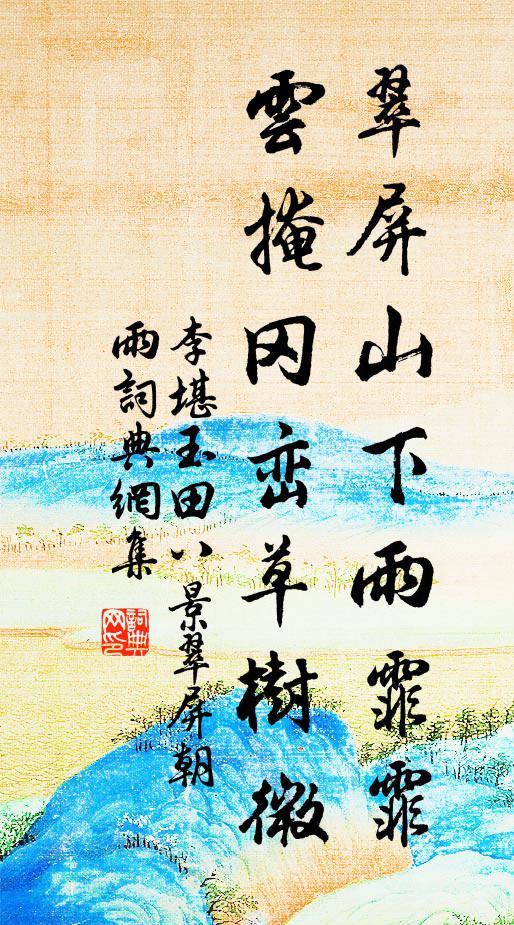 翠屏山下雨霏霏
雲掩冈峦草樹微
李堪玉田八景翠屏朝
雨詞典網集
詞典
网印